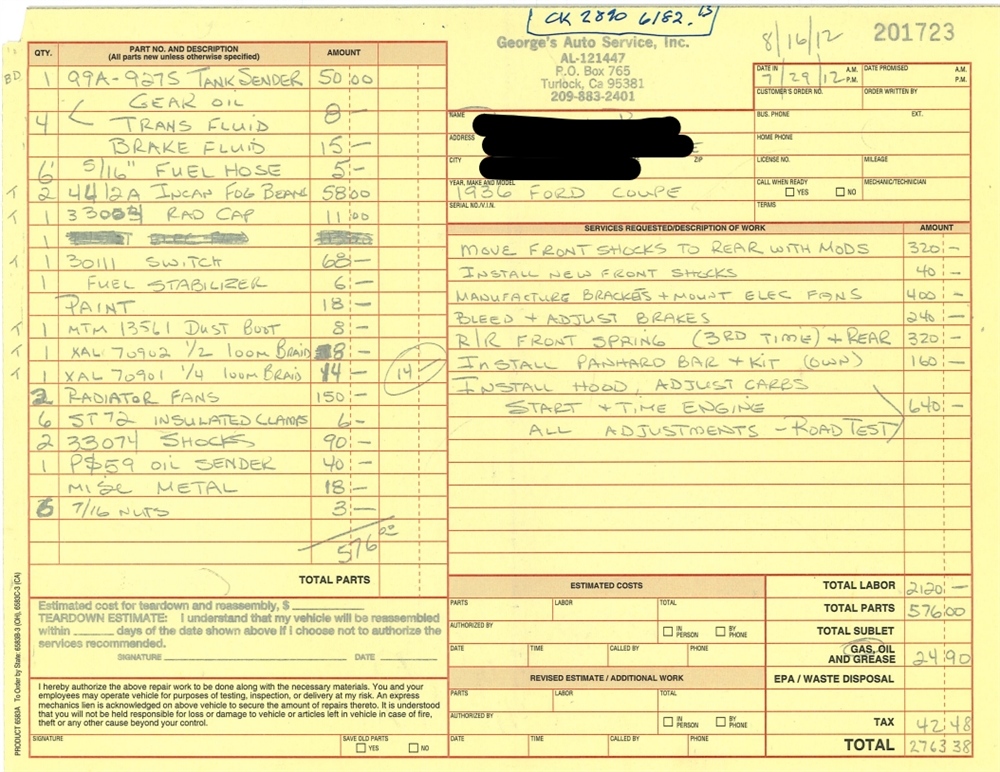 CK 2890 6182.13
201723
8/16/12
George's Auto Service, Inc.
AL-121447
P.O. Box 765
Turlock, Ca 95381
209-883-2401
QTY. PART NO. AND DESCRIPTION (All parts new unless otherwise specified) AMOUNT
BD 1 99A-9275 TANK SENDER 50 00
GEAR OIL
4 TRANS FLUID 8 -
BRAKE FLUID 15 -
6' 5/16" FUEL HOSE 5 -
T 2 4412A INCAN FOG BEAMS 58 00
T 1 RAD CAP 11 00
1
T 1 30111 SWITCH 68 -
1 FUEL STABILIZER 6 -
PAINT 18 -
T 1 MTM 13561 DUST BOOT 8 -
T 1 XAL 70902 1/2 100M BRAID 8 -
T 1 XAL 70901 1/4 100M BRAID 14 - 14 -
2 RADIATOR FANS 150 -
6 ST72 INSULATED CLAMPS 6 -
2 33074 SHOCKS 90 -
1 PS59 OIL SENDER 40 -
MISC METAL 18 -
7/16 NUTS 3 -
576 00
TOTAL PARTS
Estimated cost for teardown and reassembly, $
TEARDOWN ESTIMATE: I understand that my vehicle will be reassembled
within ______ days of the date shown above if I choose not to authorize the
services recommended.
SIGNATURE DATE
I hereby authorize the above repair work to be done along with the necessary materials. You and your
employees may operate vehicle for purposes of testing, inspection, or delivery at my risk. An express
mechanics lien is acknowledged on above vehicle to secure the amount of repairs thereto. It is understood
that you will not be held responsible for loss or damage to vehicle or articles left in vehicle in case of fire,
theft or any other cause beyond your control.
SIGNATURE SAVE OLD PARTS YES NO
PRODUCT 6583A To Order by State: 6583B-3 (OH), 6583C-3 (CA)
DATE IN 7/29/12 A.M. P.M. DATE PROMISED A.M. P.M.
CUSTOMER'S ORDER NO. ORDER WRITTEN BY
NAME BUS. PHONE EXT.
ADDRESS HOME PHONE
CITY ZIP LICENSE NO. MILEAGE
YEAR, MAKE AND MODEL CALL WHEN READY YES NO MECHANIC/TECHNICIAN
1936 FORD COUPE
SERIAL NO./V.I.N. TERMS
SERVICES REQUESTED/DESCRIPTION OF WORK AMOUNT
MOVE FRONT SHOCKS TO REAR WITH MODS 320 -
INSTALL NEW FRONT SHOCKS 40 -
MANUFACTURE BRACKETS + MOUNT ELEC FANS 400 -
BLEED + ADJUST BRAKES 240 -
R/R FRONT SPRING (3RD TIME) + REAR 320 -
INSTALL PANHARD BAR + KIT (OWN) 160 -
INSTALL HOOD, ADJUST CARBS
START + TIME ENGINE 640 -
ALL ADJUSTMENTS - ROAD TEST
ESTIMATED COSTS
PARTS LABOR TOTAL
AUTHORIZED BY IN PERSON BY PHONE
DATE TIME CALLED BY PHONE
REVISED ESTIMATE / ADDITIONAL WORK
PARTS LABOR TOTAL
AUTHORIZED BY IN PERSON BY PHONE
DATE TIME CALLED BY PHONE
TOTAL LABOR 2120 -
TOTAL PARTS 576 00
TOTAL SUBLET
GAS, OIL AND GREASE 24 90
EPA / WASTE DISPOSAL
TAX 42 48
TOTAL 2763 38